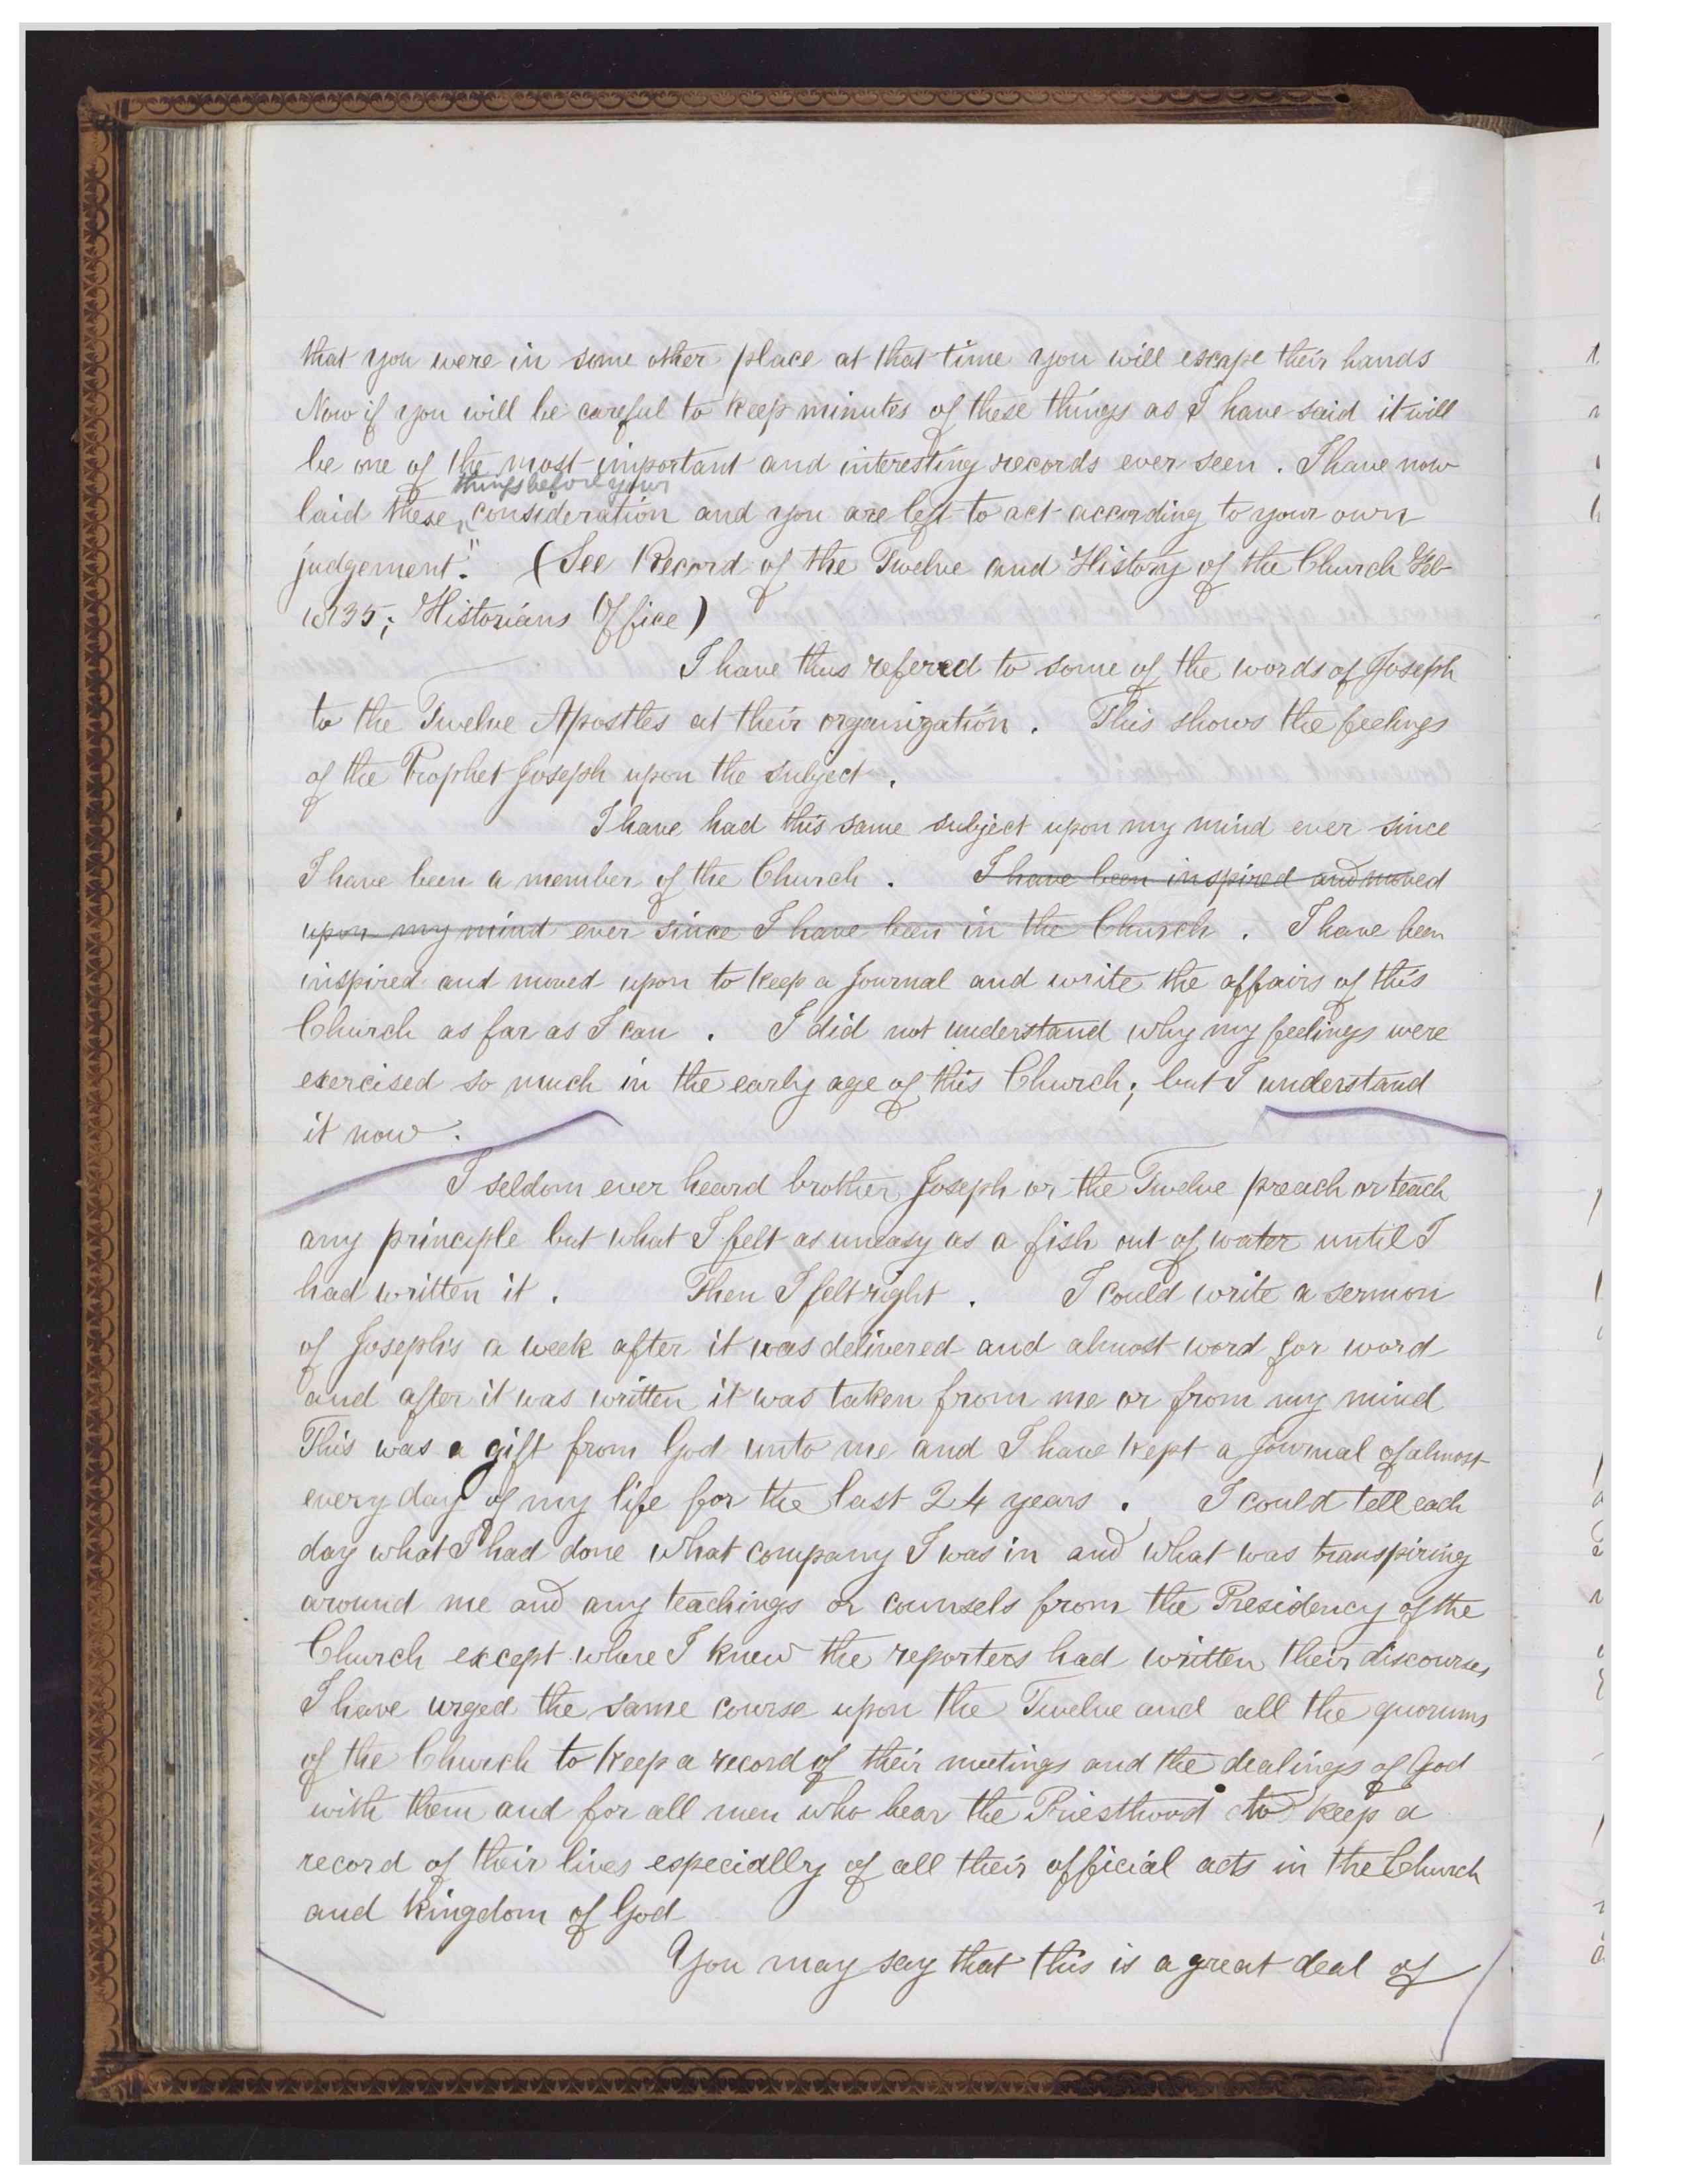 that you were in some other place at that time you will escape their hands
Now if you will be careful to keep minutes of these things as I have said it will
be one of the most important and interesting records ever seen. I have now
things before your
laid these consideration and you are left to act according to your own
judgement." (See Record of the Twelve and History of the Church Feb
1835; Historians Office)
I have thus referred to some of the words of Joseph
to the Twelve Apostles at their organization. This shows the feelings
of the Prophet Joseph upon the subject.
I have had this same subject upon my mind ever since
I have been a member of the Church. I have been inspired and moved
upon my mind ever since I have been in the Church. I have been
inspired and moved upon to keep a Journal and write the affairs of this
Church as far as I can. I did not understand why my feelings were
exercised so much in the early age of this Church; but I understand
it now.
I seldom ever heard brother Joseph or the Twelve preach or teach
any principle but what I felt as uneasy as a fish out of water until I
had written it. Then I felt right. I could write a sermon
of Joseph's a week after it was delivered and almost word for word
and after it was written it was taken from me or from my mind
This was a gift from God unto me and I have kept a Journal of almost
every day of my life for the last 24 years. I could tell each
day what I had done what company I was in and what was transpiring
around me and any teachings or counsels from the Presidency of the
Church except where I knew the reporters had written their discourses
I have urged the same course upon the Twelve and all the quorums
of the Church to keep a record of their meetings and the dealings of God
with them and for all men who bear the Priesthood to keep a
record of their lives especially of all their official acts in the Church
and kingdom of God
You may say that this is a great deal of